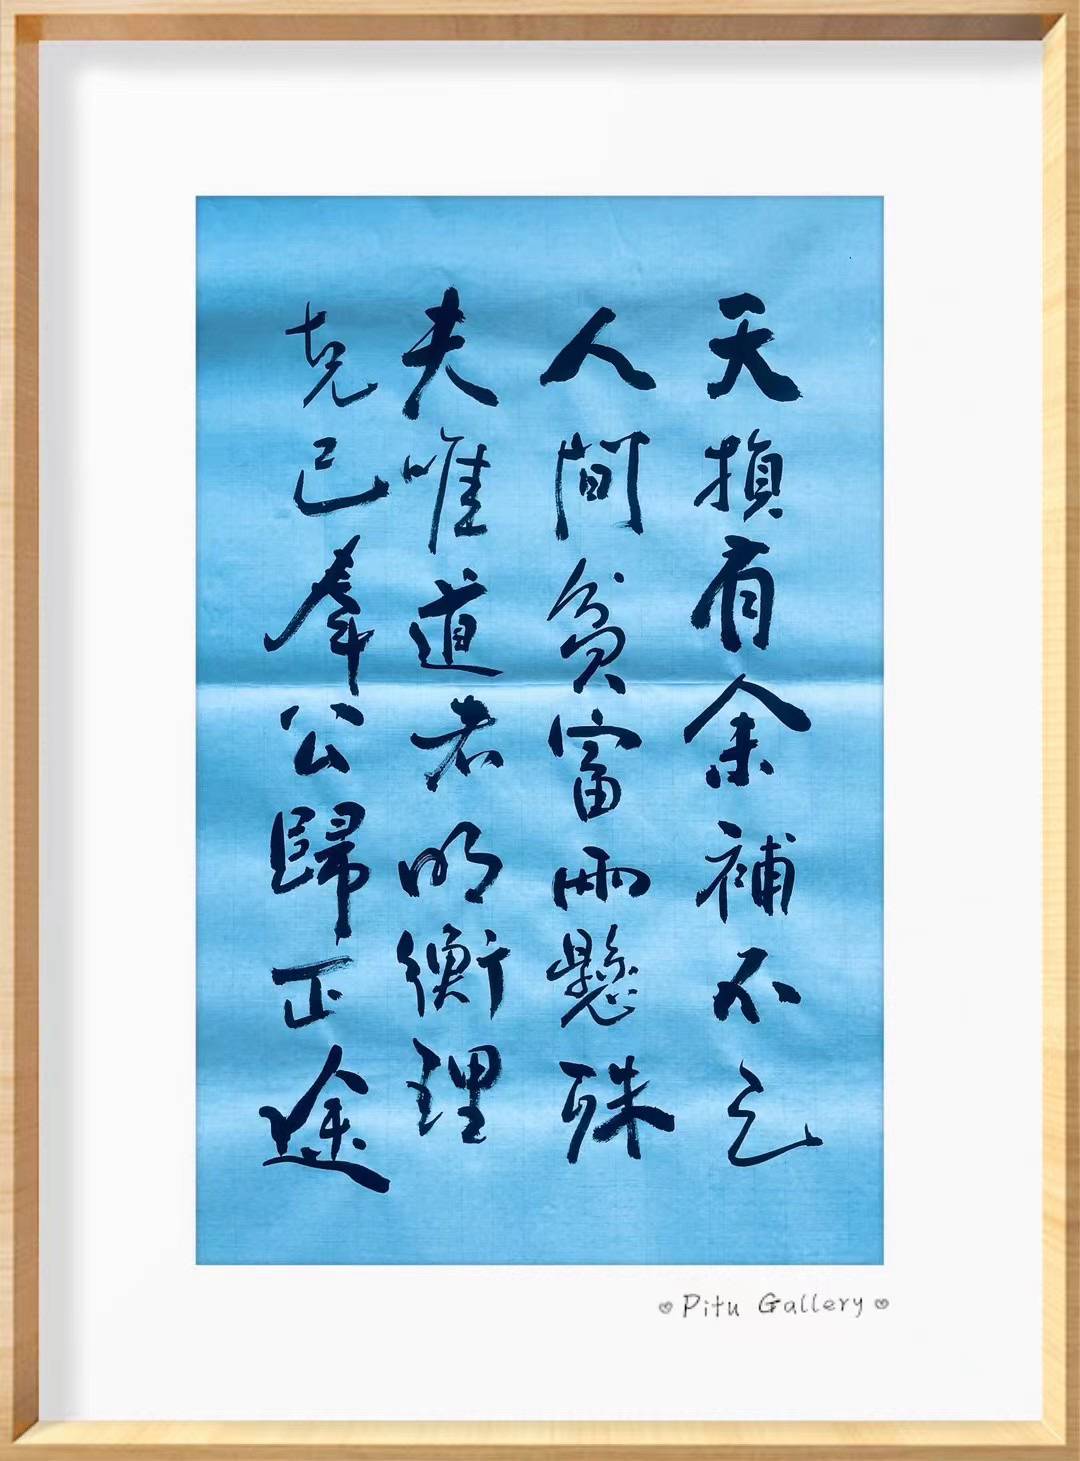 天損有余補不乞
人間貧富兩懸殊
夫唯道者明衡理
克己奉公歸正途
Pitu Gallery